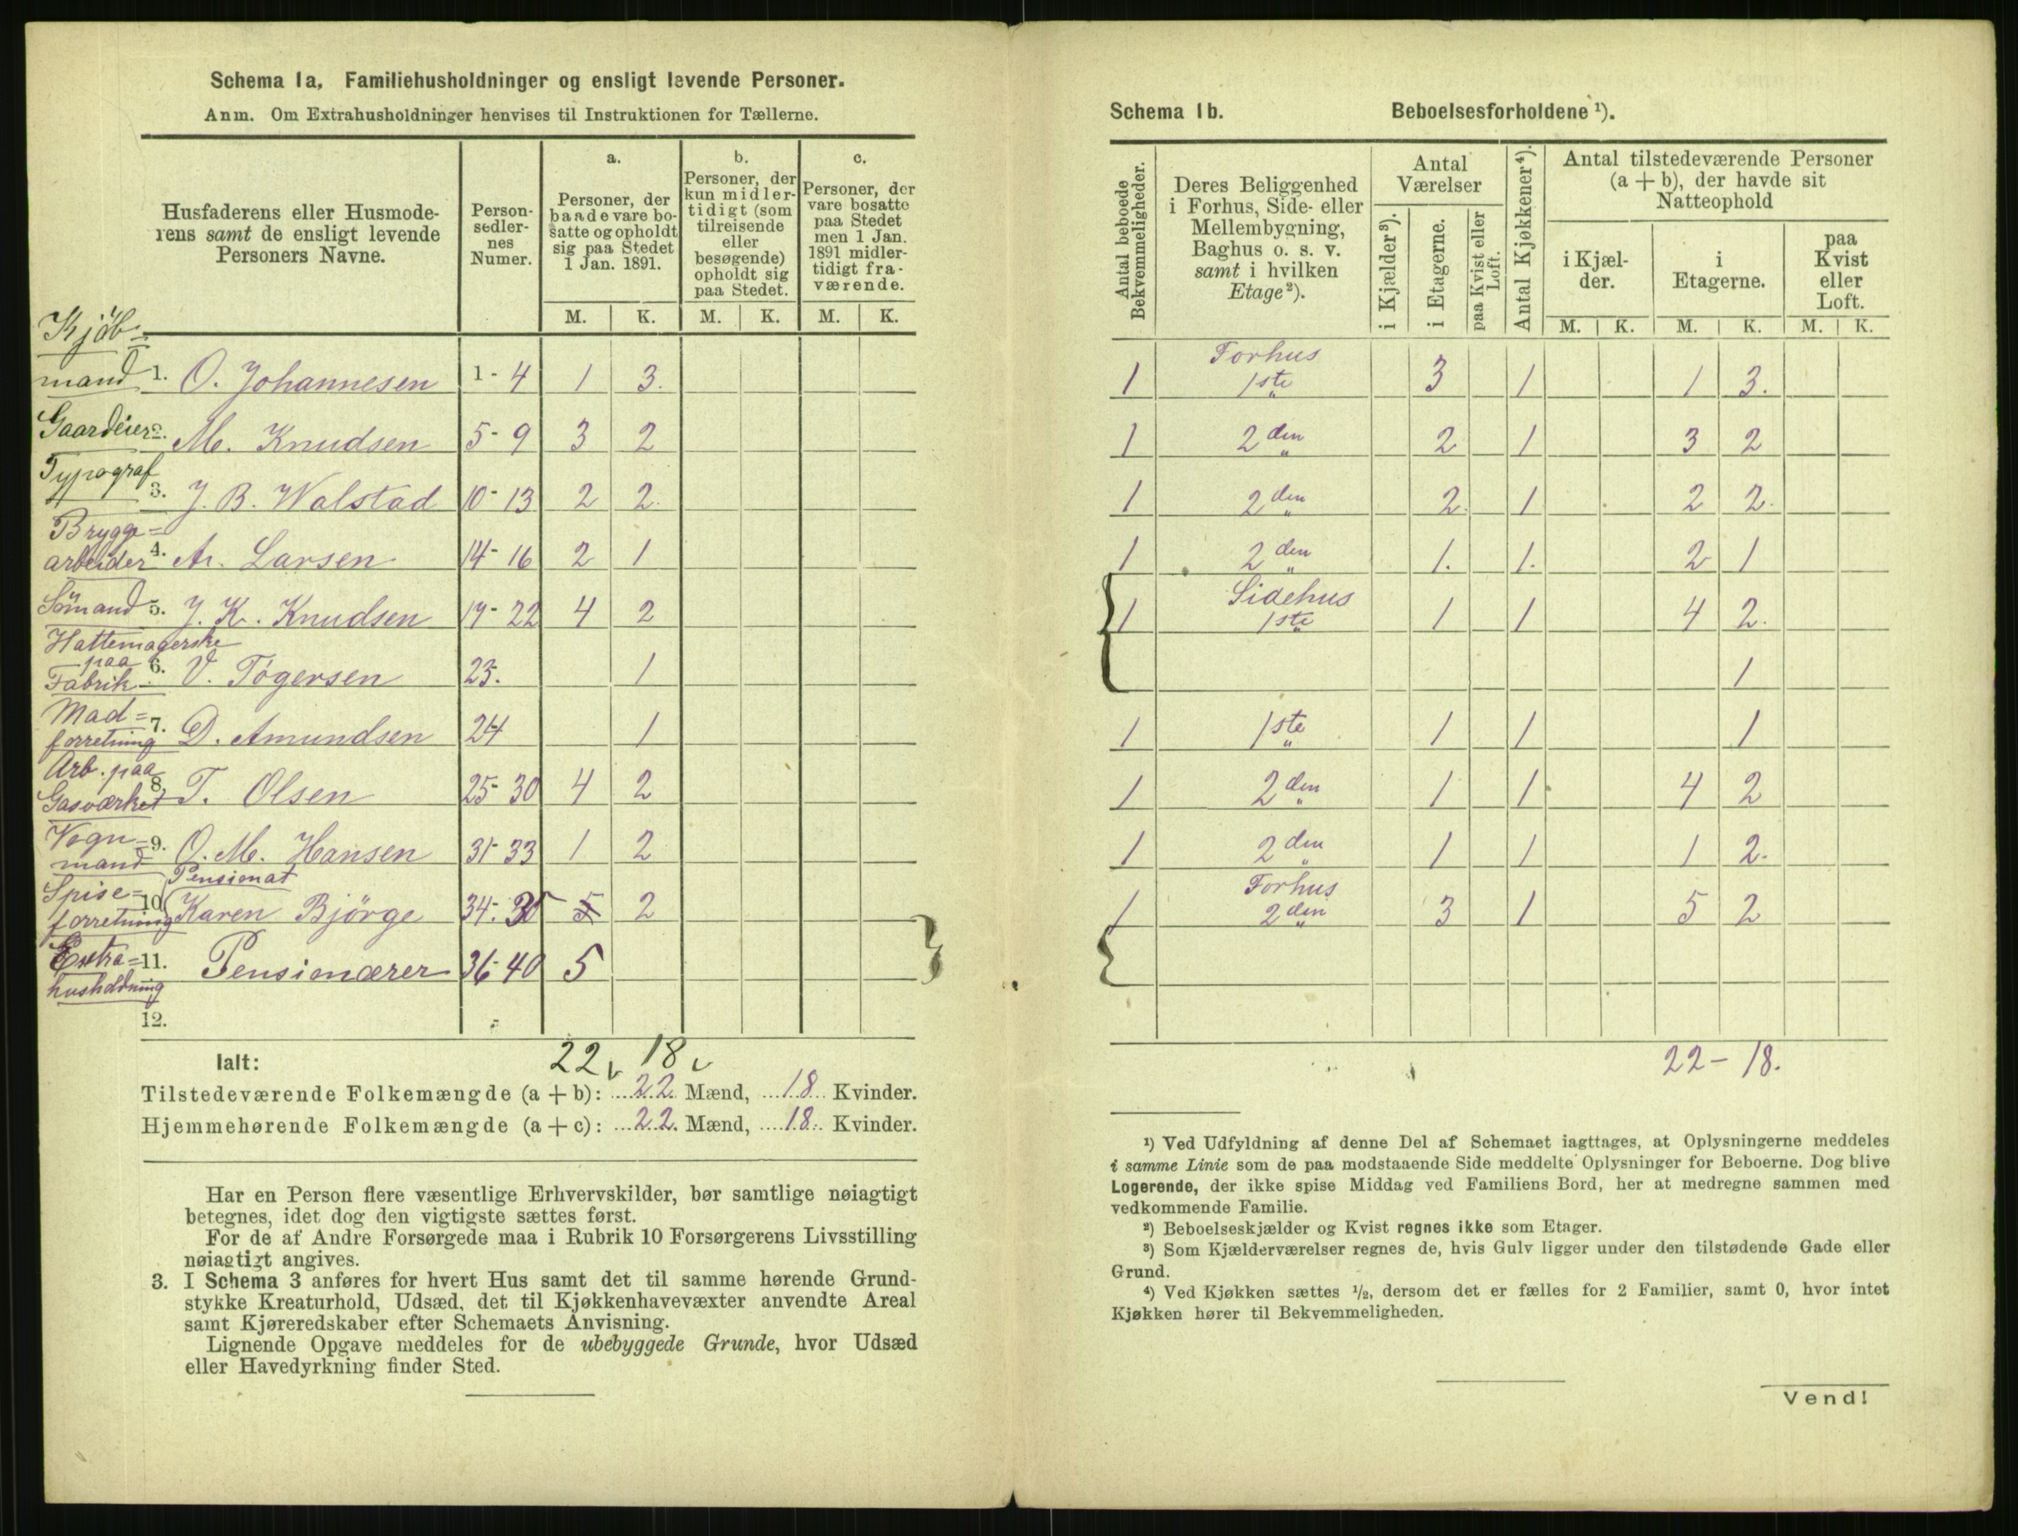 Schema 1a. Familiehusholdninger og ensligt levende Personer.
Anm. Om Extrahusholdninger henvises til Instruktionen for Tællerne.
Husfaderens eller Husmoderens samt de ensligt levende Personers Navne.
Personsedlernes Numer.
a. Personer, der baade vare bosatte og opholdt sig paa Stedet 1 Jan. 1891.
b. Personer, der kun midlertidigt (som tilreisende eller besøgende) opholdt sig paa Stedet.
c. Personer, der vare bosatte paa Stedet men 1 Jan. 1891 midlertidigt fraværende.
M. K. M. K. M. K.
Kjöbmand 1. O. Johannesen 1-4 1 3.
Gaardeier 2. M. Knudsen 5-9 3 2
Typograf 3. J. B. Walstad 10-13 2 2.
Bryggearbeider 4. A. Larsen 14-16 2 1
Sömand 5. J. K. Knudsen 17-22 4 2
Hattemagerske paa Fabrik 6. V. Togersen 23. 1
Mad=forretning 7. D. Amundsen 24 1
Arb. paa Gasværket 8. T. Olsen 25-30 4 2
Vogn=mand 9. O. M. Hansen 31-33 1 2
Pensionat
Spise=forretning 10. Karen Bjorge 34-35 5 2
Extra=husholdning 11. Pensionærer 36-40 5
12.
Ialt: 22 18
Tilstedeværende Folkemængde (a + b): 22 Mænd, 18 Kvinder.
Hjemmehørende Folkemængde (a + c): 22. Mænd, 18. Kvinder.
Har en Person flere væsentlige Erhvervskilder, bør samtlige nøiagtigt
betegnes, idet dog den vigtigste sættes først.
For de af Andre Forsørgede maa i Rubrik 10 Forsørgerens Livsstilling
nøiagtigt angives.
3. I Schema 3 anføres for hvert Hus samt det til samme hørende Grund-
stykke Kreaturhold, Udsæd, det til Kjøkkenhavevæxter anvendte Areal
samt Kjøreredskaber efter Schemaets Anvisning.
Lignende Opgave meddeles for de ubebyggede Grunde, hvor Udsæd
eller Havedyrkning finder Sted.
Schema 1b. Beboelsesforholdene ¹).
Antal beboede Bekvemmeligheder.
Deres Beliggenhed i Forhus, Side- eller Mellembygning, Baghus o. s. v. samt i hvilken Etage²).
Antal Værelser
i Kjælder³).
i Etagerne.
paa Kvist eller Loft.
Antal Kjøkkener⁴).
Antal tilstedeværende Personer (a + b), der havde sit Natteophold
i Kjælder.
i Etagerne.
paa Kvist eller Loft.
M. K. M. K. M. K.
1 Forhus 1ste 3 1 1 3.
1 2den 2 1 3 2
1 2den 2. 1 2 2.
1 2den 1. 1. 2 1
1 Sidehus 1ste 1 1 4 2.
1
1 1ste 1 1 1
1 2den 1 1 4 2
1 2den 1 1 1 2.
1 Forhus 2den 3 1 5 2
22-18.
¹) Ved Udfyldning af denne Del af Schemaet iagttages, at Oplysningerne meddeles
i samme Linie som de paa modstaaende Side meddelte Oplysninger for Beboerne. Dog blive
Logerende, der ikke spise Middag ved Familiens Bord, her at medregne sammen med
vedkommende Familie.
²) Beboelseskjælder og Kvist regnes ikke som Etager.
³) Som Kjælderværelser regnes de, hvis Gulv ligger under den tilstødende Gade eller
Grund.
⁴) Ved Kjøkken sættes ½, dersom det er fælles for 2 Familier, samt 0, hvor intet
Kjøkken hører til Bekvemmeligheden.
Vend!